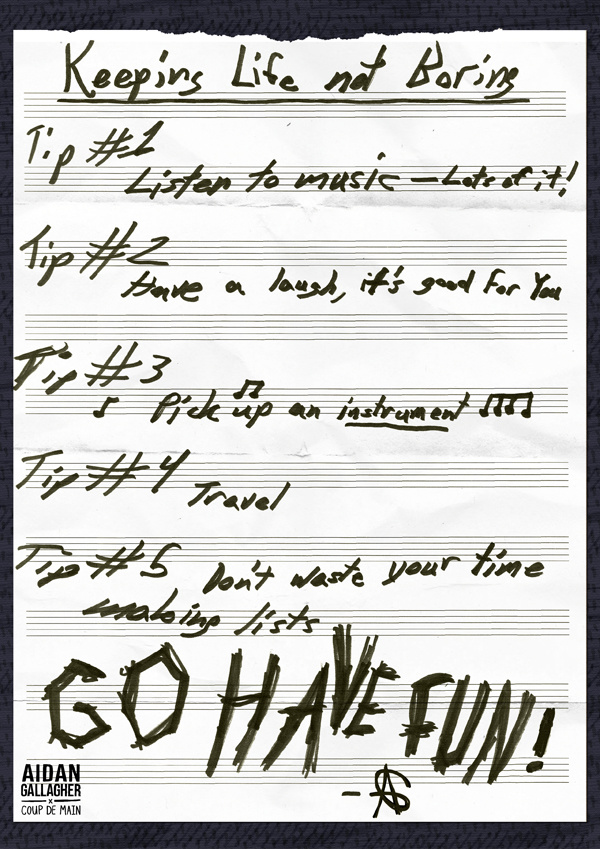 Keeping Life not Boring
Tip #1
Listen to music — Lots of it!
Tip #2
Have a laugh, it's good For You
Tip #3
♪ Pick up an instrument ♫♫
Tip #4
Travel
Tip #5 Don't waste your time
making lists
GO HAVE FUN!
- AG
AIDAN
GALLAGHER
x
COUP DE MAIN